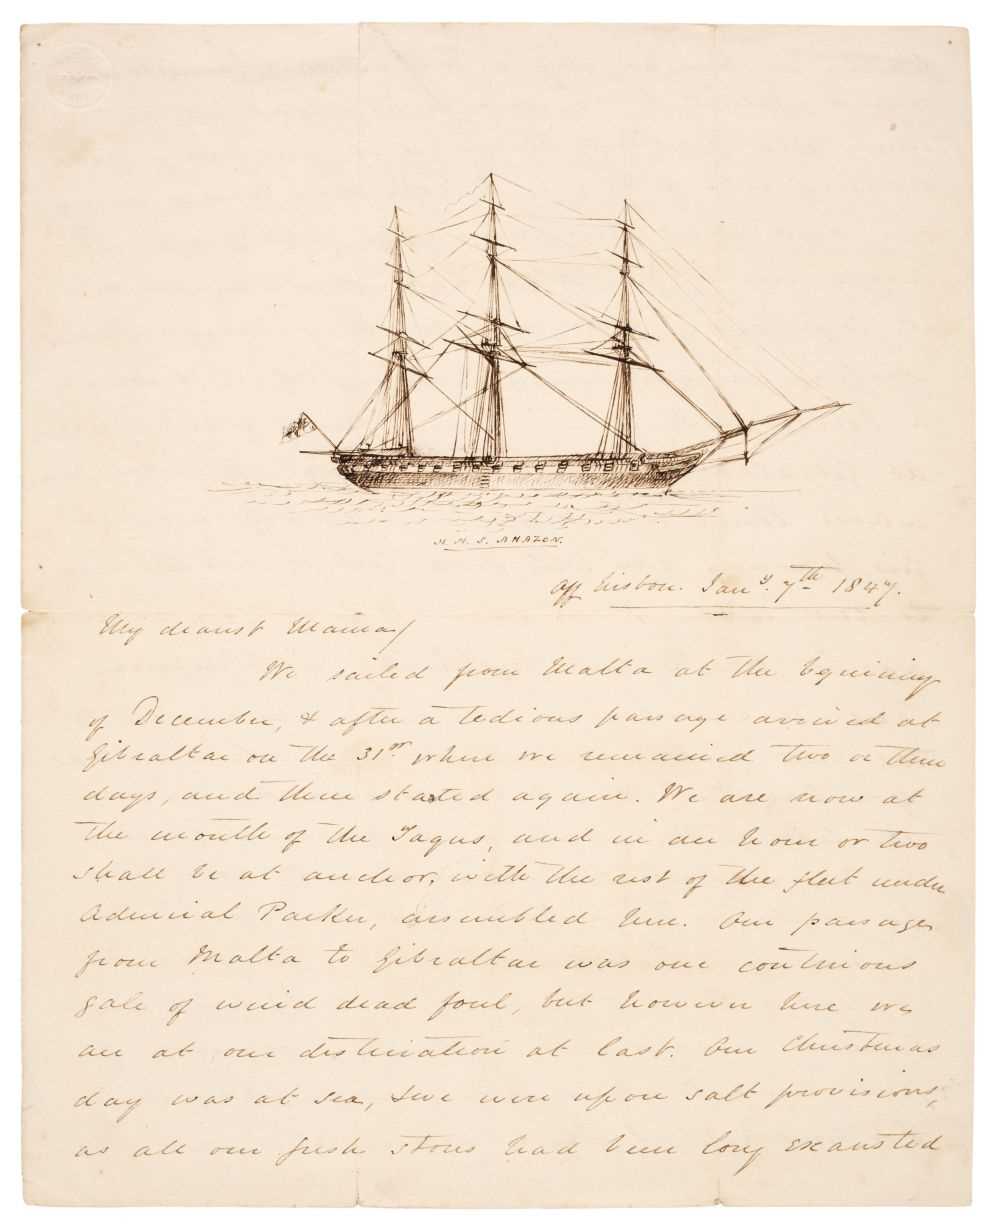 H. M. S. AMAZON.
Off Lisbon. Jany. 7th 1847.
My dearest Mama/
We sailed from Malta at the beginning
of December, & after a tedious passage arrived at
Gibraltar on the 31st where we remained two or three
days, and then started again. We are now at
the mouth of the Tagus, and in an hour or two
shall be at anchor, with the rest of the fleet under
Admiral Parker, assembled here. Our passage
from Malta to Gibraltar was one continious
gale of wind dead foul, but however here we
are at our destination at last. Our Christmas
day was at sea, & we were upon salt provisions,
as all our fresh stores had been long exausted